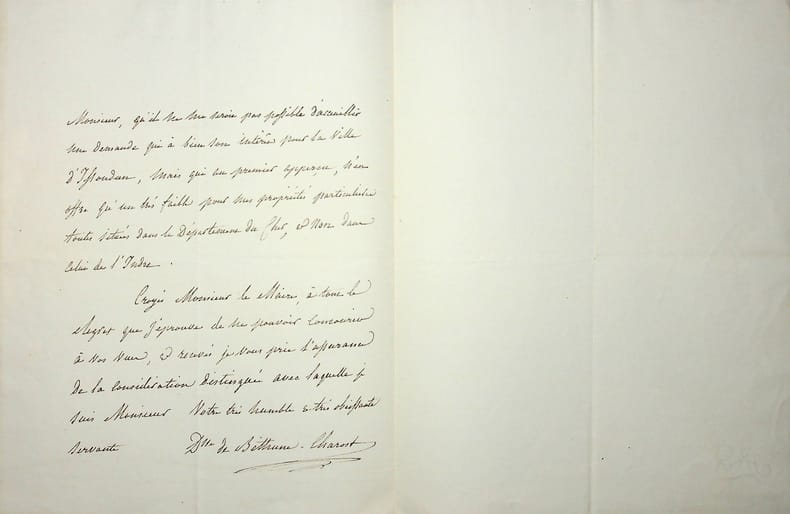 Monsieur, qu'il ne me seroit pas possible d'accueillir
une demande qui à bien son intérêt pour la Ville
d'Issoudun, mais qui au premier apperçu, n'en
offre qu'un très faible pour mes propriétés particulières
toutes situées dans le Département du Cher, et Non dans
Celui de l'Indre.
Croyés Monsieur le Maire, à tout le
Regret que j'éprouve de ne pouvoir concourir
à vos vues, et recevés je vous prie l'assurance
de la considération distinguée avec laquelle je
suis Monsieur Votre très humble & très obéissante
servante Dsse de Béthune-Charost